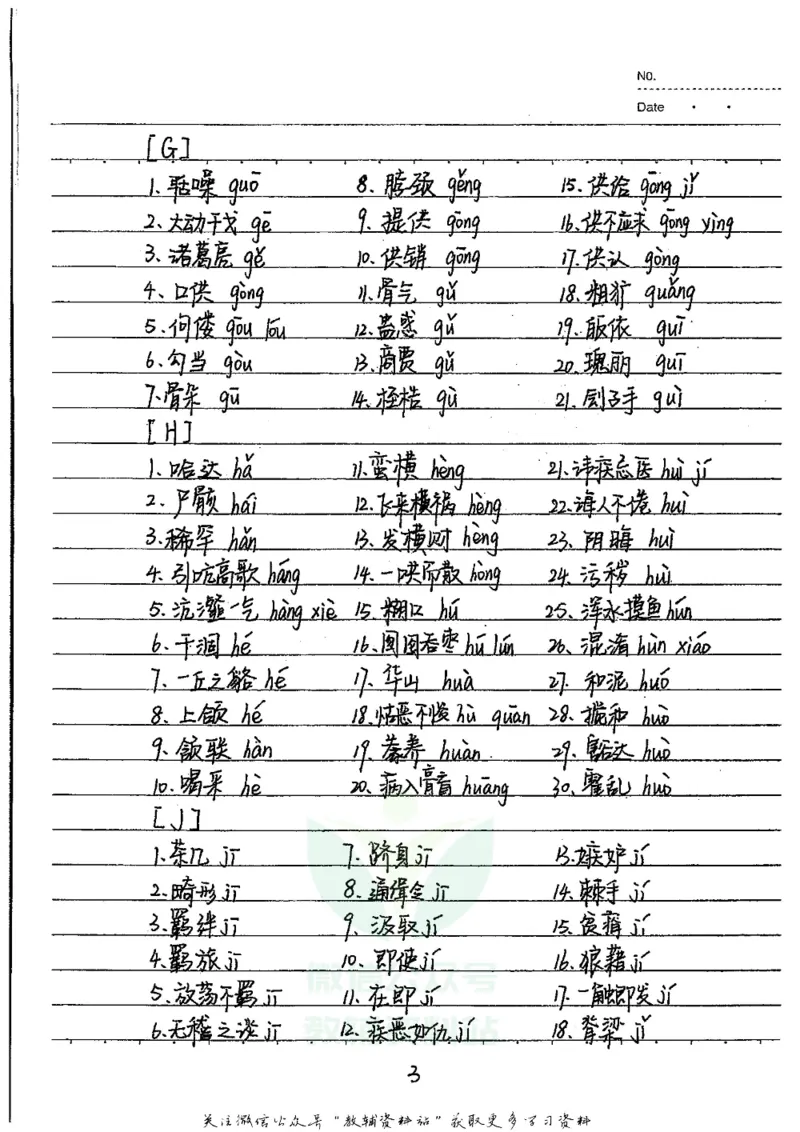 NO.
Date
[G]
1、聒噪 guō 8、脖颈 gěng 15、供给 gōng jǐ
2、大动干戈 gē 9、提供 gōng 16、供不应求 gōng yìng
3、诸葛亮 gě 10、供销 gōng 17、供认 gòng
4、口供 gòng 11、骨气 gǔ 18、粗犷 guǎng
5、佝偻 gōu lóu 12、蛊惑 gǔ 19、皈依 guī
6、勾当 gòu 13、商贾 gǔ 20、瑰丽 guī
7、骨朵 gū 14、桎梏 gù 21、刽子手 guì
[H]
1、哈达 hǎ 11、蛮横 hèng 21、讳疾忌医 huì jí
2、尸骸 hái 12、飞来横祸 hèng 22、诲人不倦 huì
3、稀罕 hǎn 13、发横财 hèng 23、阴晦 huì
4、引吭高歌 háng 14、一哄而散 hòng 24、污秽 huì
5、沆瀣一气 hàng xiè 15、糊口 hú 25、浑水摸鱼 hún
6、干涸 hé 16、囫囵吞枣 hú lún 26、混淆 hùn xiáo
7、一丘之貉 hé 17、华山 huà 27、和泥 huó
8、上颌 hé 18、怙恶不悛 hù quān 28、搅和 huò
9、颔联 hàn 19、豢养 huàn 29、豁达 huò
10、喝采 hè 20、病入膏肓 huāng 30、霍乱 huò
[J]
1、茶几 jī 7、跻身 jī 13、嫉妒 jí
2、畸形 jī 8、通缉令 jī 14、棘手 jí
3、羁绊 jī 9、汲取 jí 15、贫瘠 jí
4、羁旅 jī 10、即使 jí 16、狼藉 jí
5、放荡不羁 jī 11、在即 jí 17、一触即发 jí
6、无稽之谈 jī 12、疾恶如仇 jí 18、脊梁 jǐ
微信公众号
教辅资料站
3
关注微信公众号"教辅资料站"获取更多学习资料